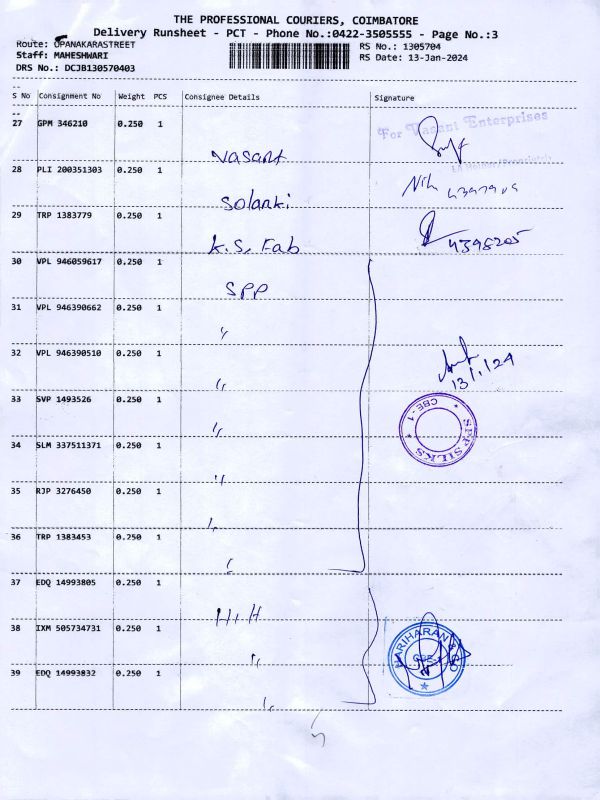 THE PROFESSIONAL COURIERS, COIMBATORE
Delivery Runsheet - PCT - Phone No.:0422-3505555 - Page No.:3
Route: OPANAKARASTREET
RS No.: 1305704
Staff: MAHESHWARI
RS Date: 13-Jan-2024
DRS No.: DCJB130570403
S No Consignment No Weight PCS Consignee Details Signature
27 GPM 346210 0.250 1 Vasant For Vasant Enterprises
28 PLI 200351303 0.250 1 Solanki
29 TRP 1383779 0.250 1 K.S. Fab
30 VPL 946059617 0.250 1 SPP
31 VPL 946390662 0.250 1 "
32 VPL 946390510 0.250 1 " 13/1/24
33 SVP 1493526 0.250 1 " SPP SILKS * CBE-1 *
34 SLM 337511371 0.250 1 "
35 RJP 3276450 0.250 1 "
36 TRP 1383453 0.250 1 "
37 EDQ 14993805 0.250 1 H.H
38 IXM 505734731 0.250 1 " HARIHARAN & CO CBE-1
39 EDQ 14993832 0.250 1 "